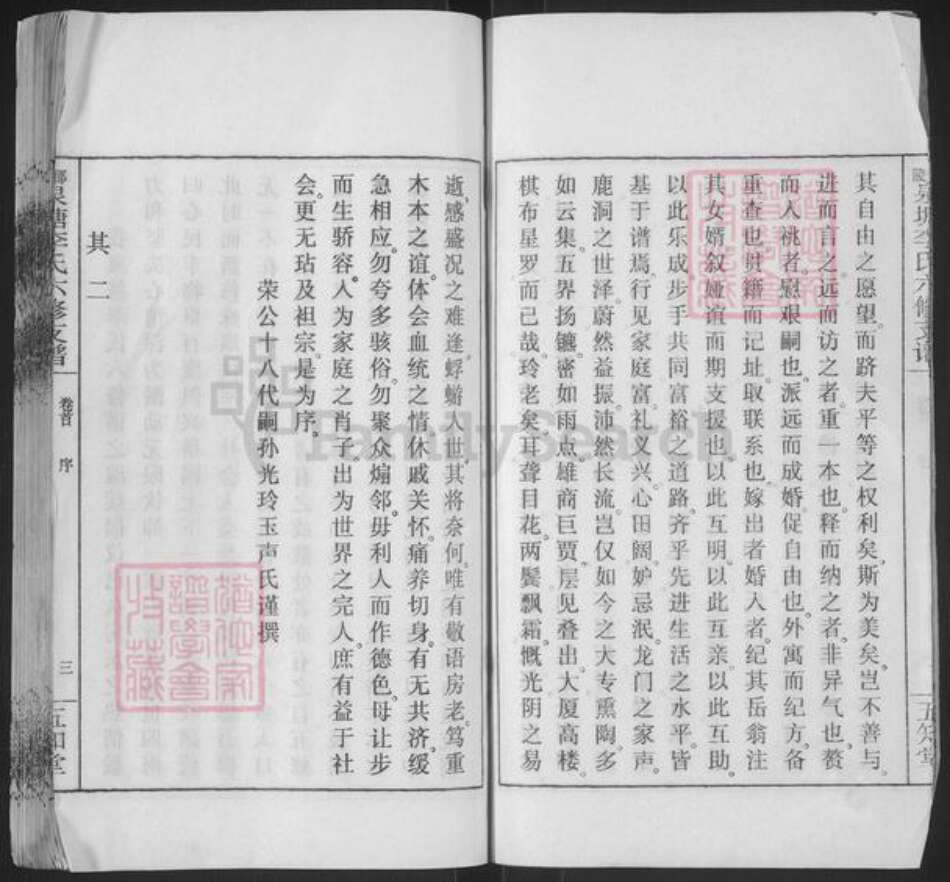 其自由之愿望而跻夫平等之权利矣。斯为美矣。岂不善与。
进而言之。远而访之者重一本也。释而纳之者。非异气也。赘
而入祧者。慰艰嗣也。派远而成婚促自由也。外寓而纪方。备
重查也。财籍而记址取联系也。嫁出者婚入者。纪其岳翁注
其女婿叙娅谊而期支援也以此互明。以此互亲以此互助。
以此乐成步于共同富裕之道路。齐乎先进生活之水平。皆
基于谱焉。行见家庭富。礼义兴。心田阔。妒忌泯。龙门之家声。
鹿洞之世泽。蔚然益振。沛然长流。岂仅如今之大专熏陶。多
如云集。五界扬镳。密如雨点。雄商巨贾。层见叠出。大厦高楼。
棋布星罗。而已哉玲老矣耳聋目花。两鬓飘霜。慨光阴之易
逝。感盛况之难逢。蜉蝣人世。其将奈何。唯有敬语房老。笃重
木本之谊。体会血统之情休戚关怀。痛养切身。有无共济。缓
急相应。勿夸多骇俗。勿聚众煽邻。毋利人而作德色。毋让步
而生骄容。人为家庭之肖子。出为世界之完人。庶有益于社
会。更无玷及祖宗。是为序。
荣公十八代嗣孙光玲玉声氏谨撰
其二
泉塘李氏六修支谱
卷首
序
三
五知堂